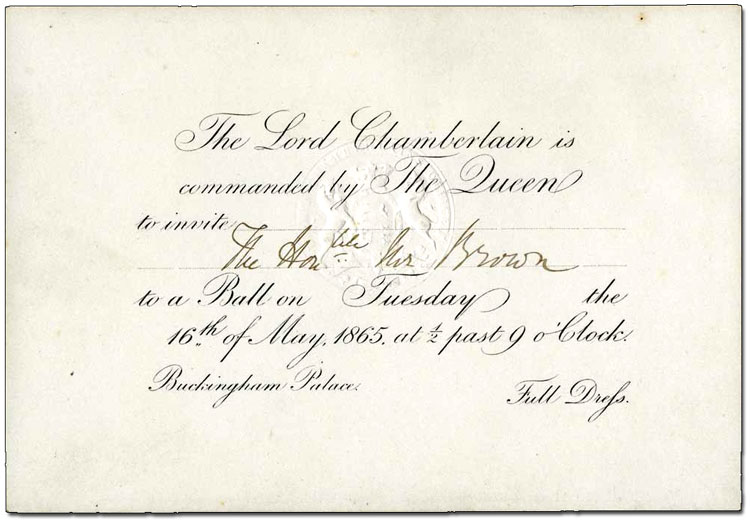 The Lord Chamberlain is
commanded by The Queen
to invite
The Honble Mr. Brown
to a Ball on Tuesday the
16th of May, 1865, at ½ past 9 o'Clock.
Buckingham Palace.
Full Dreſs.